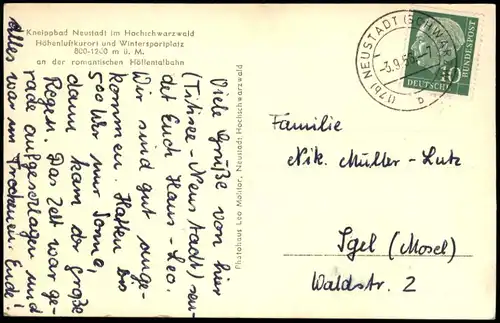 Kneippbad Neustadt im Hochschwarzwald
Höhenluftkurort und Wintersportplatz
800-1200 m ü. M.
an der romantischen Höllentalbahn
Viele Grüße von hier
(Titisee-Neustadt) sen-
det Euch Hans-Leo.
Wir sind gut ange-
kommen. Hatten bis
500 Uhr nur Sonne,
dann kam der große
Regen. Das Zelt war ge-
rade aufgeschlagen und
Alles war im Trockenen. Ende!
Photohaus Leo Molitor, Neustadt Hochschwarzwald
(17b) NEUSTADT (SCHWARZW
-3.9.58.-7
b
10
BUNDESPOST
DEUTSCHE
Familie
Nik. Müller-Lutz
Igel (Mosel)
Waldstr. 2